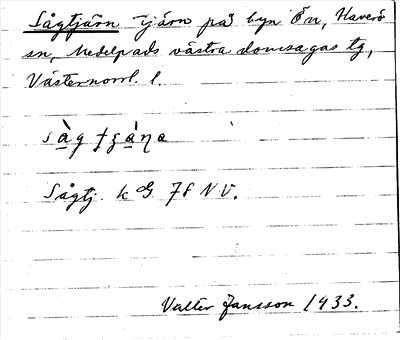 Sågtjärn tjärn på byn Ön, Haverö
sn, Medelpads västra domsagas tg,
Västernorrl. l.
Sågtj. k G. 78 N V.
Valter Jansson 1933.